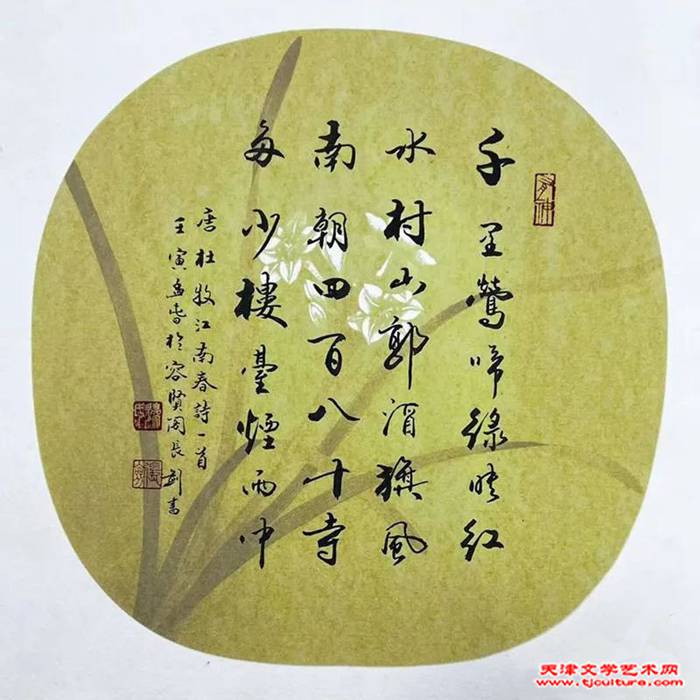 千里鶯啼綠映紅
水村山郭酒旗風
南朝四百八十寺
多少樓臺煙雨中
唐杜牧江南春詩一首
壬寅孟春於容賢閣長剑書
天津文学艺术网
www.tjculture.com